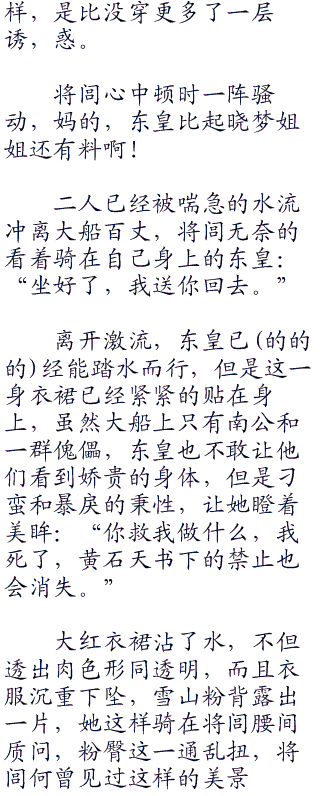 样，是比没穿更多了一层
诱，惑。
将闾心中顿时一阵骚
动，妈的，东皇比起晓梦姐
姐还有料啊！
二人已经被喘急的水流
冲离大船百丈，将闾无奈的
看着骑在自己身上的东皇：
“坐好了，我送你回去。”
离开激流，东皇已(的的
的)经能踏水而行，但是这一
身衣裙已经紧紧的贴在身
上，虽然大船上只有南公和
一群傀儡，东皇也不敢让他
们看到娇贵的身体，但是刁
蛮和暴戾的秉性，让她瞪着
美眸：“你救我做什么，我
死了，黄石天书下的禁止也
会消失。”
大红衣裙沾了水，不但
透出肉色形同透明，而且衣
服沉重下坠，雪山粉背露出
一片，她这样骑在将闾腰间
质问，粉臀这一通乱扭，将
闾何曾见过这样的美景